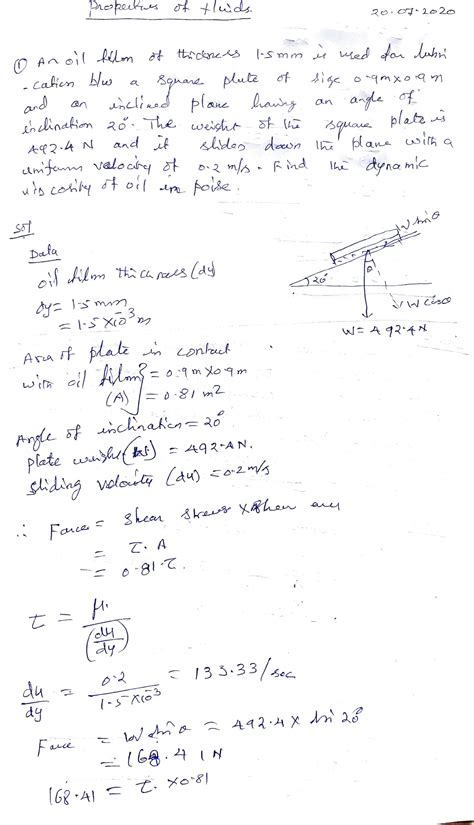 Properties of fluids
20.07.2020
① An oil film of thickness 1.5mm is used for lubri
-cation b/w a square plate of size 0.9m×0.9m
and an inclined plane having an angle of
inclination 20°. The weight of the square plate is
492.4 N and it slides down the plane with a
uniform velocity of 0.2 m/s. Find the dynamic
viscosity of oil in poise.
Sol
Data
oil film thickness (dy)
dy = 1.5 mm
= 1.5×10⁻³m
W sinθ
20°
θ
W cosθ
W = 492.4N
Area of plate in contact
with oil film} = 0.9m×0.9m
(A) = 0.81 m²
Angle of inclination = 20°
plate weight = 492.4N.
sliding velocity (du) = 0.2m/s
∴ Force = Shear stress ×
= τ. A
= 0.81.τ.
τ = μ. / (du/dy)
du/dy = 0.2 / 1.5×10⁻³ = 133.33/sec
Force = W sinθ = 492.4× sin 20°
= 168.41N
168.41 = τ. ×0.81